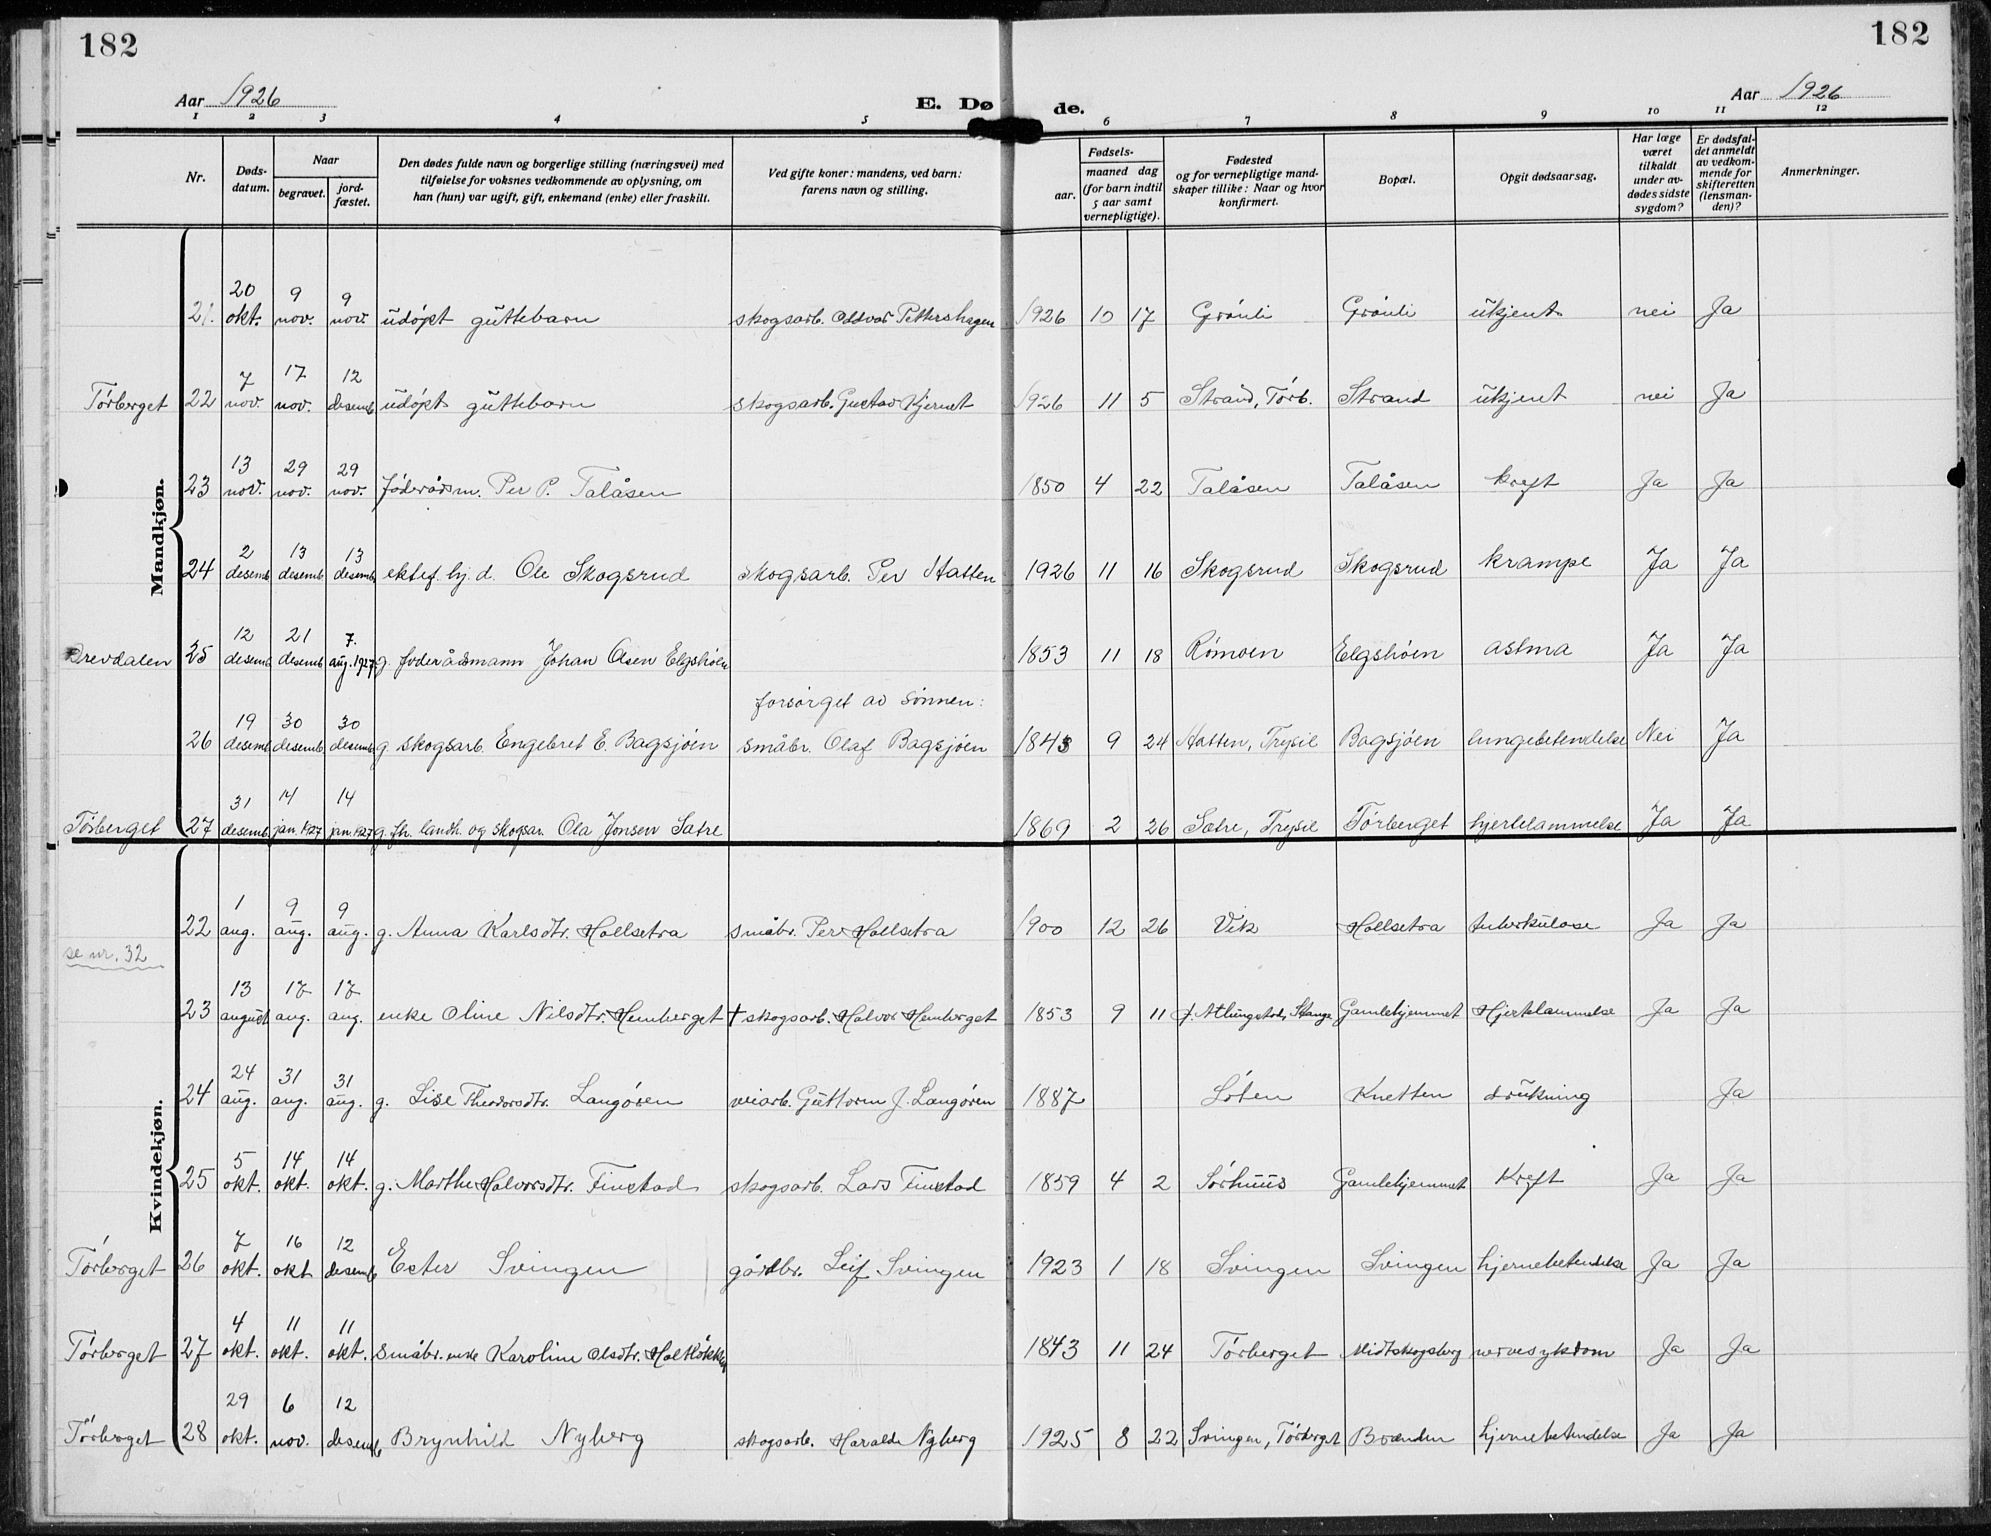 182
182
Aar 1926
E. Dø
de.
Aar 1926
1 2 3 4 5 6 7 8 9 10 11 12
Nr.
Døds-
datum.
Naar
begravet.
jord-
fæstet.
Den dødes fulde navn og borgerlige stilling (næringsvei) med
tilføielse for voksnes vedkommende av oplysning, om
han (hun) var ugift, gift, enkemand (enke) eller fraskilt.
Ved gifte koner: mandens, ved barn:
farens navn og stilling.
Fødsels-
aar.
maaned dag
(for barn indtil
5 aar samt
vernepligtige).
Fødested
og for vernepligtige mand-
skaper tillike: Naar og hvor
konfirmert.
Bopæl.
Opgit dødsaarsag.
Har læge
været
tilkaldt
under av-
dødes sidste
sygdom?
Er dødsfal-
det anmeldt
av vedkom-
mende for
skifteretten
(lensman-
den)?
Anmerkninger.
Mandkjøn.
20 9 9
21. okt. nov. nov. udøpt guttebarn skogsarb. Oddvar Pettershagen 1926 10 17 Grønli Grønli ukjent nei Ja
7 17 12
Tørberget 22 nov. nov. desemb. udøpt guttebarn skogsarb. Gustav Kjernet 1926 11 5 Strand, Tørb. Strand ukjent nei Ja
13 29 29
23 nov. nov. nov. føderådsm. Per P. Talåsen 1850 4 22 Talåsen Talåsen kreft Ja Ja
2 13 13
24 desemb. desemb. desemb. ektef. hj. d. Ole Skogsrud skogsarb. Per Hatten 1926 11 16 Skogsrud Skogsrud krampe Ja Ja
12 21 7.
Drevdalen 25 desemb. desemb. aug. 1927 g. føderådsmann Johan Olsen Elgshøen 1853 11 18 Rømoen Elgshøen astma Ja Ja
forsørget av sønnen:
19 30 30
26 desemb. desemb. desemb. g. skogsarb. Engebret E. Bagsjøen småbr. Olaf Bagsjøen 1843 9 24 Hatten, Trysil Bagsjøen lungebetendelse Nei Ja
31 14 14
Tørberget 27 desemb. jan. 1927 jan. 1927 g. fh. landh. og skogsar. Ola Jonsen Sætre 1869 2 26 Sætre, Trysil Tørberget hjertelammelse Ja Ja
Kvindekjøn.
1 9 9
22 aug. aug. aug. g. Anna Karlsdtr. Hollsetra småbr. Per Hollsetra 1900 12 26 Vik Hollsetra tuberkulose Ja Ja
se nr. 32
13 17 17
23 august aug. aug. enke Oline Nilsdtr. Hemberget † skogsarb. Halvor Hemberget 1853 9 11 Stange Gamlehjemmet Hjertelammelse Ja Ja
24 31 31
24 aug. aug. aug. g. Lise Theodorsdtr. Langøren veiarb. Guttorm J. Langøren 1887 Løten Knetten drukning Ja
5 14 14
25 okt. okt. okt. g. Marthe Halvorsdtr. Finstad skogsarb. Lars Finstad 1859 4 2 Sørhuus Gamlehjemmet Kreft Ja Ja
7 16 12
Tørberget 26 okt. okt desemb. Ester Svingen gårdbr. Leif Svingen 1923 1 18 Svingen Svingen hjernebetendelse Ja Ja
4 11 11
Tørberget 27 okt. okt. okt. småbr. enke Karoline Olsdtr. Holtløkken 1843 11 24 Tørberget Midtskogsberg nervesykdom Ja Ja
29 6 12
Tørberget 28 okt. nov. desemb. Brynhild Nyberg skogsarb. Harald Nyberg 1925 8 22 Svingen, Tørberget Brænden hjernebetendelse Ja Ja